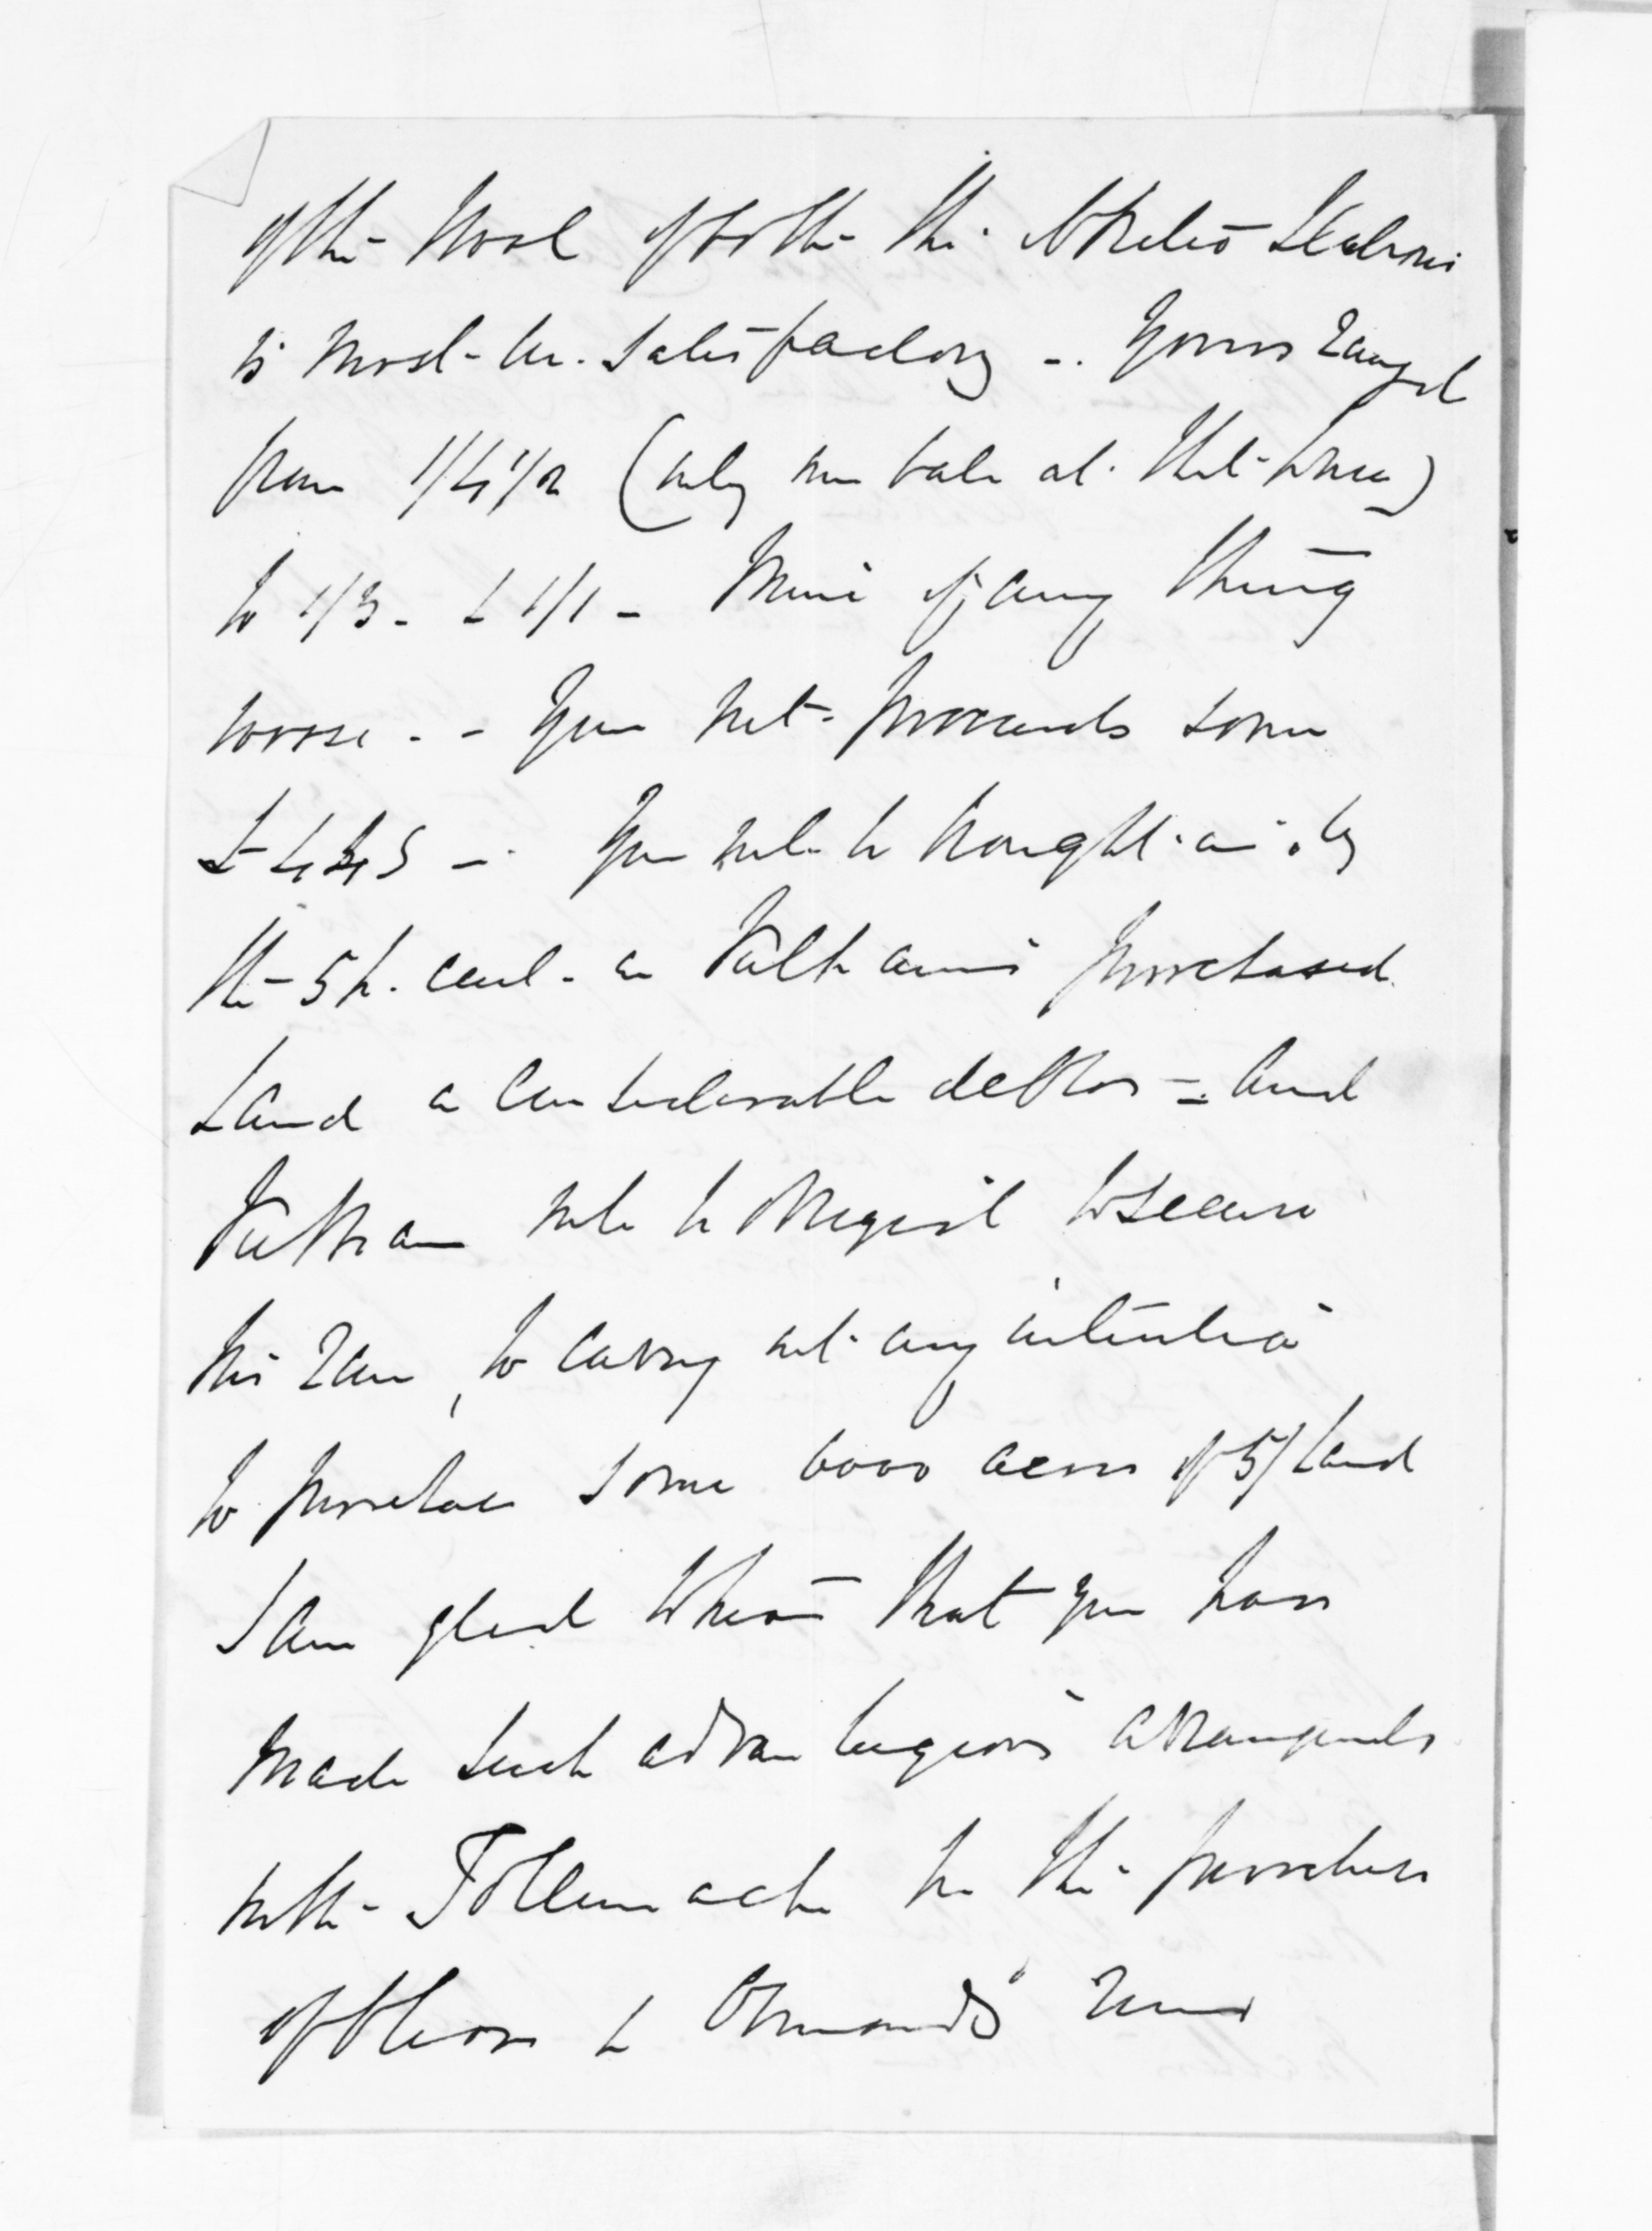 of the Wool of both the Stations
is most un-satisfactory -. Yours ranged
from 1/4 1/2 (only one bale at that price)
to 1/3 - & 1/1 - Mine if any thing
worse - - Your net proceeds some
£445 -. You will be brought in by
the 5 p. cent. on purchased
Land a considerable debtor - and
will be obliged to secure
his run, to carry out any intention
to purchase some 6000 acres of 5/ Land
I am glad to hear that you have
made such advantageous arrangements
with Tollemache for the purchase
of & Ormond's runs